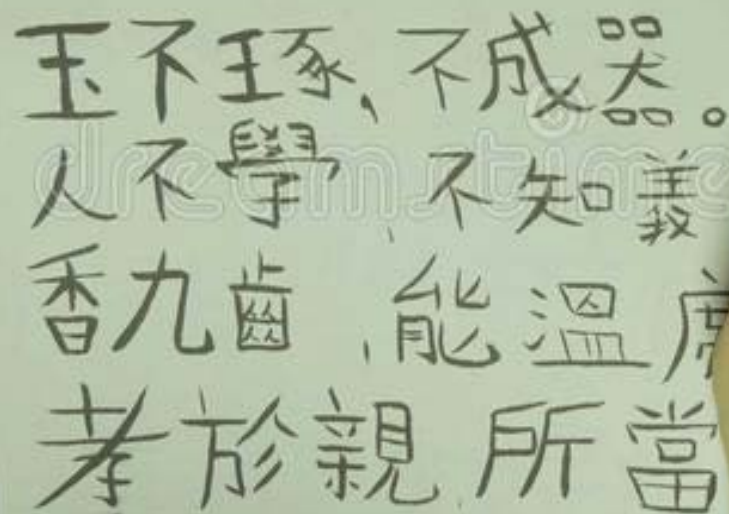 玉不琢、不成器。
人不學、不知義
香九齒、能溫席
孝於親、所當
dreamstime